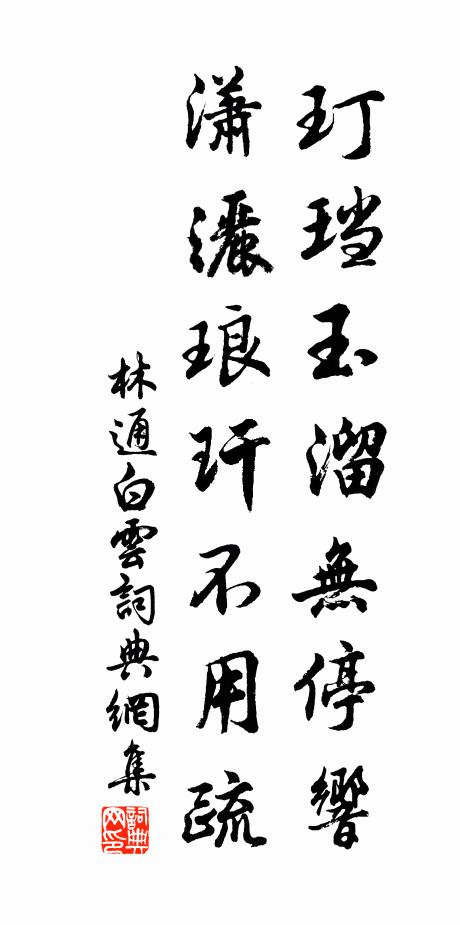 玎璫玉溜無停響
瀟灑琅玕不用疏
林通白雲詞典網集
詞典網印